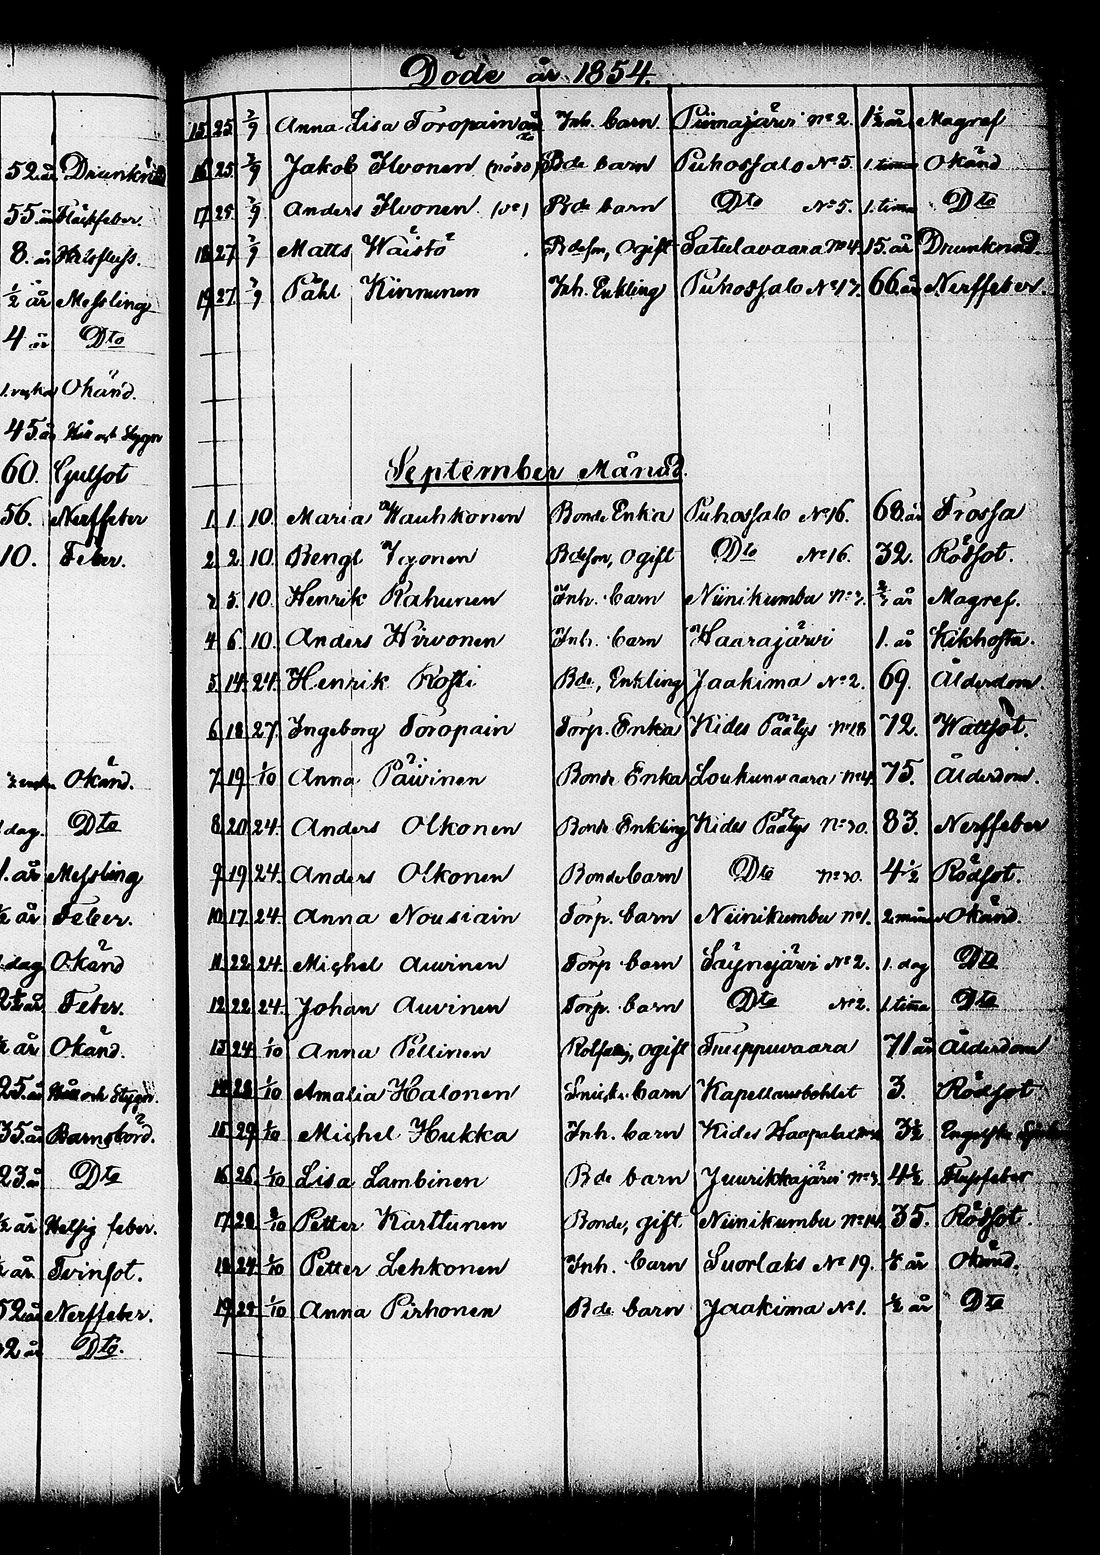 Döde år 1854.
52. år Drunknad
55. år Fläckfeber.
8. år
½ år Messling
4 år Dto
Okänd.
45. år Håll och Styggn
60. Gulsot
56. Nerffeber
10. Feber.
Okänd.
dag. Dto
1. år Messling
½ år Feber.
dag Okänd
2½ år Feber.
år Okänd.
25. år Håll och Stygn.
35. år Barnsbörd.
23. år Dto
½ år Hetsig feber.
år Tvinsot.
52 år Nerffeber.
2 år Dto.
15 25 2/9 Anna Lisa Toropain Inh. barn Piimajärvi No 2. 1½ år Magref
16 25 2/9 Jakob Ilvonen (nöd) Bde barn Puhossalo No 5. 1. tima Okänd
17 25 2/9 Anders Ilvonen Bde barn Dto No 5. 1. tima Dto
18 27 2/9 Matts Wäistö Bdeson, Ogift Satulavaara No 4. 15 år Drunknad.
19 27 2/9 Påhl Kinnunen Inh. Enkling Puhossalo No 17. 66 år Nerffeber.
September Månad.
1. 1. 10. Maria Wauhkonen Bonde Enka Puhossalo No 16. 68 år Frossa
2 2 10. Bengt Iyonen Bdeson, Ogift Dto No 16. 32. Rödsot.
3 5. 10. Henrik Kahunen Inh. barn Niinikumbu år Magref.
4 6 10. Anders Hirvonen Inh. barn Haarajärvi 1. år Kikhosta.
5 14 24. Henrik Kosti Bde, Enkling Jaakima No 2. 69. Ålderdom.
6 18 27. Ingeborg Toropain Torp. Enka Kides Päätys No 18 72. Wattsot.
7 19 1/10 Anna Päivinen Bonde Enka Loukunvaara No 4. 75. Ålderdom.
8 20 24. Anders Olkonen Bonde Enkling Kides Päätys No 30. 83. Nerffeber
9 19 24. Anders Olkonen Bonde barn Dto No 30. 4½ Rödsot.
10 17 24. Anna Nousiain Torp. barn Niinikumbu No 1. Okänd.
11. 22 24. Michel Auvinen Torp barn Säynejärvi No 2. 1. dag Dto
12 22 24. Johan Auvinen Torp. barn Dto No 2. 1. tima Dto
13 24 1/10 Anna Pellinen ogift 71 år Ålderdom
14 28 1/10 Amalia Halonen barn Kapellansbohlet 3. Rödsot
15 29 1/10 Michel Hukka Inh. barn Kides 3½ Engelska
16 26 1/10 Lisa Lambinen Bde barn Juurikkajärvi No 3. 4½ Flussfeber
17 28 Petter Karttunen Bonde, gift Niinikumbu No 14. 35. Rödsot.
18 24 1/10 Petter Lehkonen Inh. barn Suorlaks No 19. år Okänd.
19 29 1/10 Anna Pirhonen Bde barn Jaakima No 1. ½ år Dto